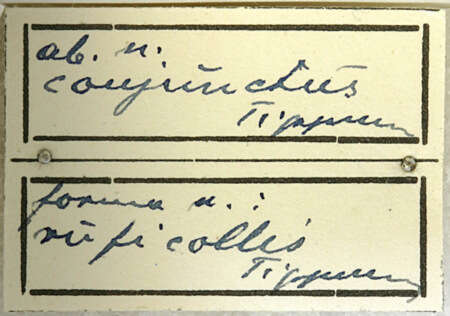 ab. n.
conjunctus
Tippmann
forma n.:
ruficollis
Tippmann